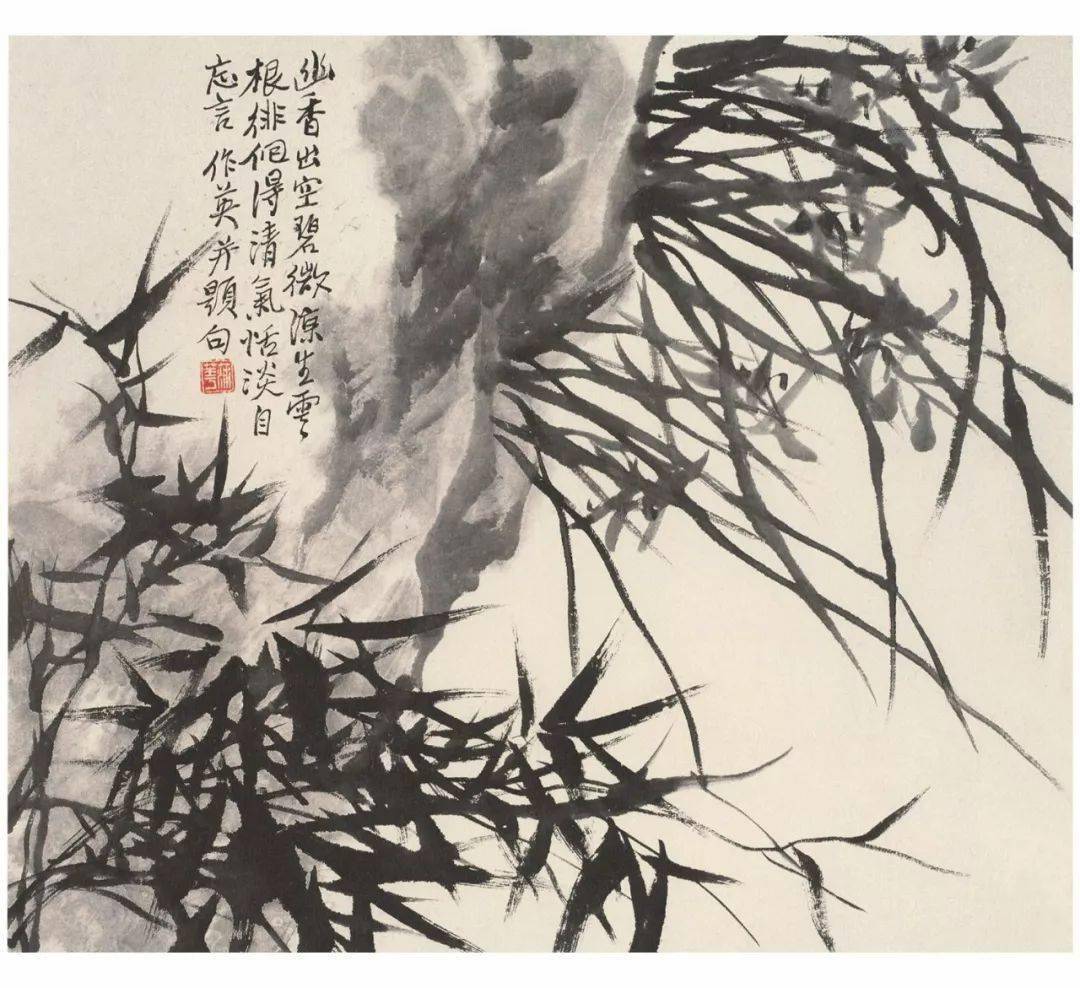 幽香出空碧微涼生雲
根徘徊得清氣恬淡自
忘言 作英并題句
蒲華